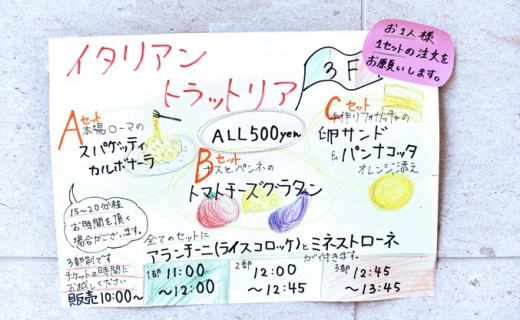 イタリアン
トラットリア
3F
お1人様
1セットの注文を
お願いします。
Aセット
本場ローマの
スパゲッティ
カルボナーラ
ALL500yen
Cセット
手作りフォカッチャの
卵サンド
&パンナコッタ
オレンジ添え
Bセット
ナスとペンネの
トマトチーズグラタン
15〜20分程
お時間を頂く
場合がございます。
3部制です
チケットの時間に
お越しください
販売10:00〜
全てのセットに
アランチーニ(ライスコロッケ)とミネストローネ
が付きます。
1部 11:00
〜12:00
2部
12:00
〜12:45
3部
12:45
〜13:45